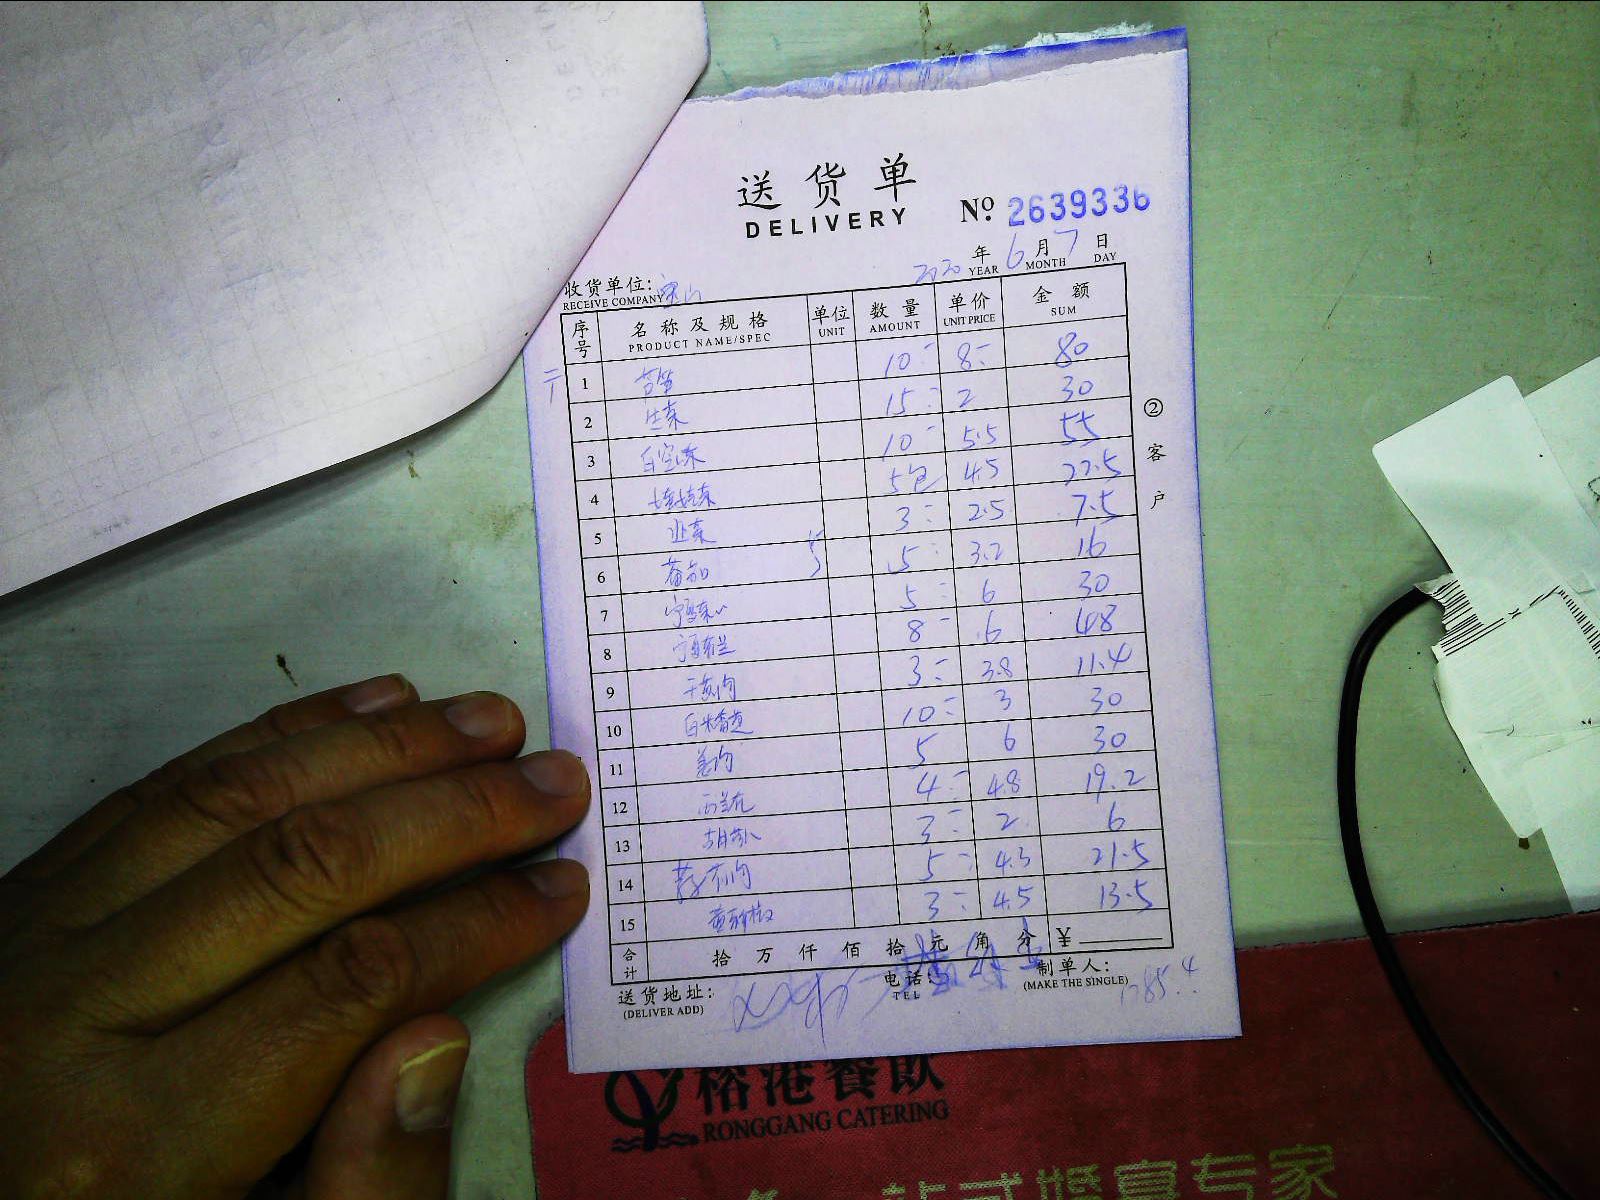 送货单
DELIVERY
No. 2639336
2020 年 6 月 7 日
YEAR MONTH DAY
收货单位:
RECEIVE COMPANY
序号 名称及规格 单位 数量 单价 金额
PRODUCT NAME/SPEC UNIT AMOUNT UNIT PRICE SUM
1 10 8 80
2 生菜 15 2 30
3 10 5.5 55
4 5包 4.5 22.5
5 韭菜 3 2.5 7.5
6 番茄 5 3.2 16
7 宁夏菜心 5 6 30
8 8 6 48
9 3 3.8 11.4
10 10 3 30
11 5 6 30
12 西兰花 4 4.8 19.2
13 3 2 6
14 5 4.3 21.5
15 3 4.5 13.5
合计 拾 万 仟 佰 拾 元 角 分 ¥
送货地址: 电话: 制单人:
(DELIVER ADD) TEL (MAKE THE SINGLE)
② 客户
榕港餐飲
RONGGANG CATERING
一站式婚宴专家